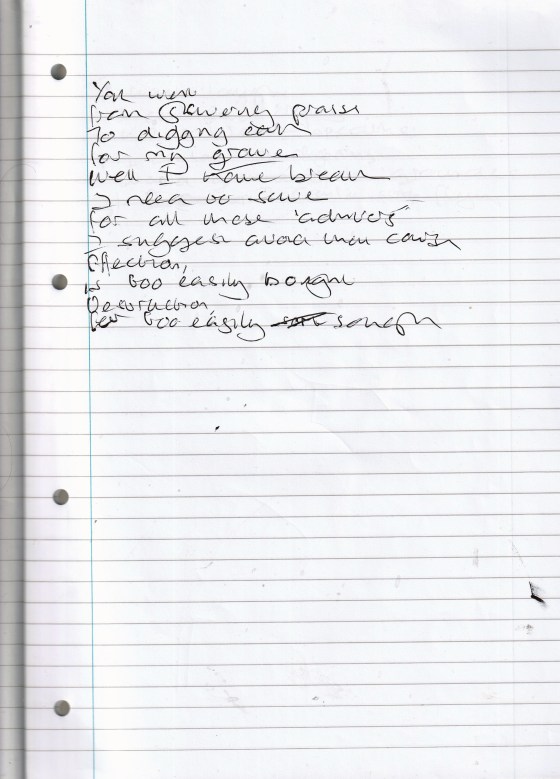 You went
from showering praise
to digging earth
for my grave
well I have breath
I need to save
for all those 'admirers'
I suggest avoid their cause
Affection,
is too easily bought
Destruction
too easily sought